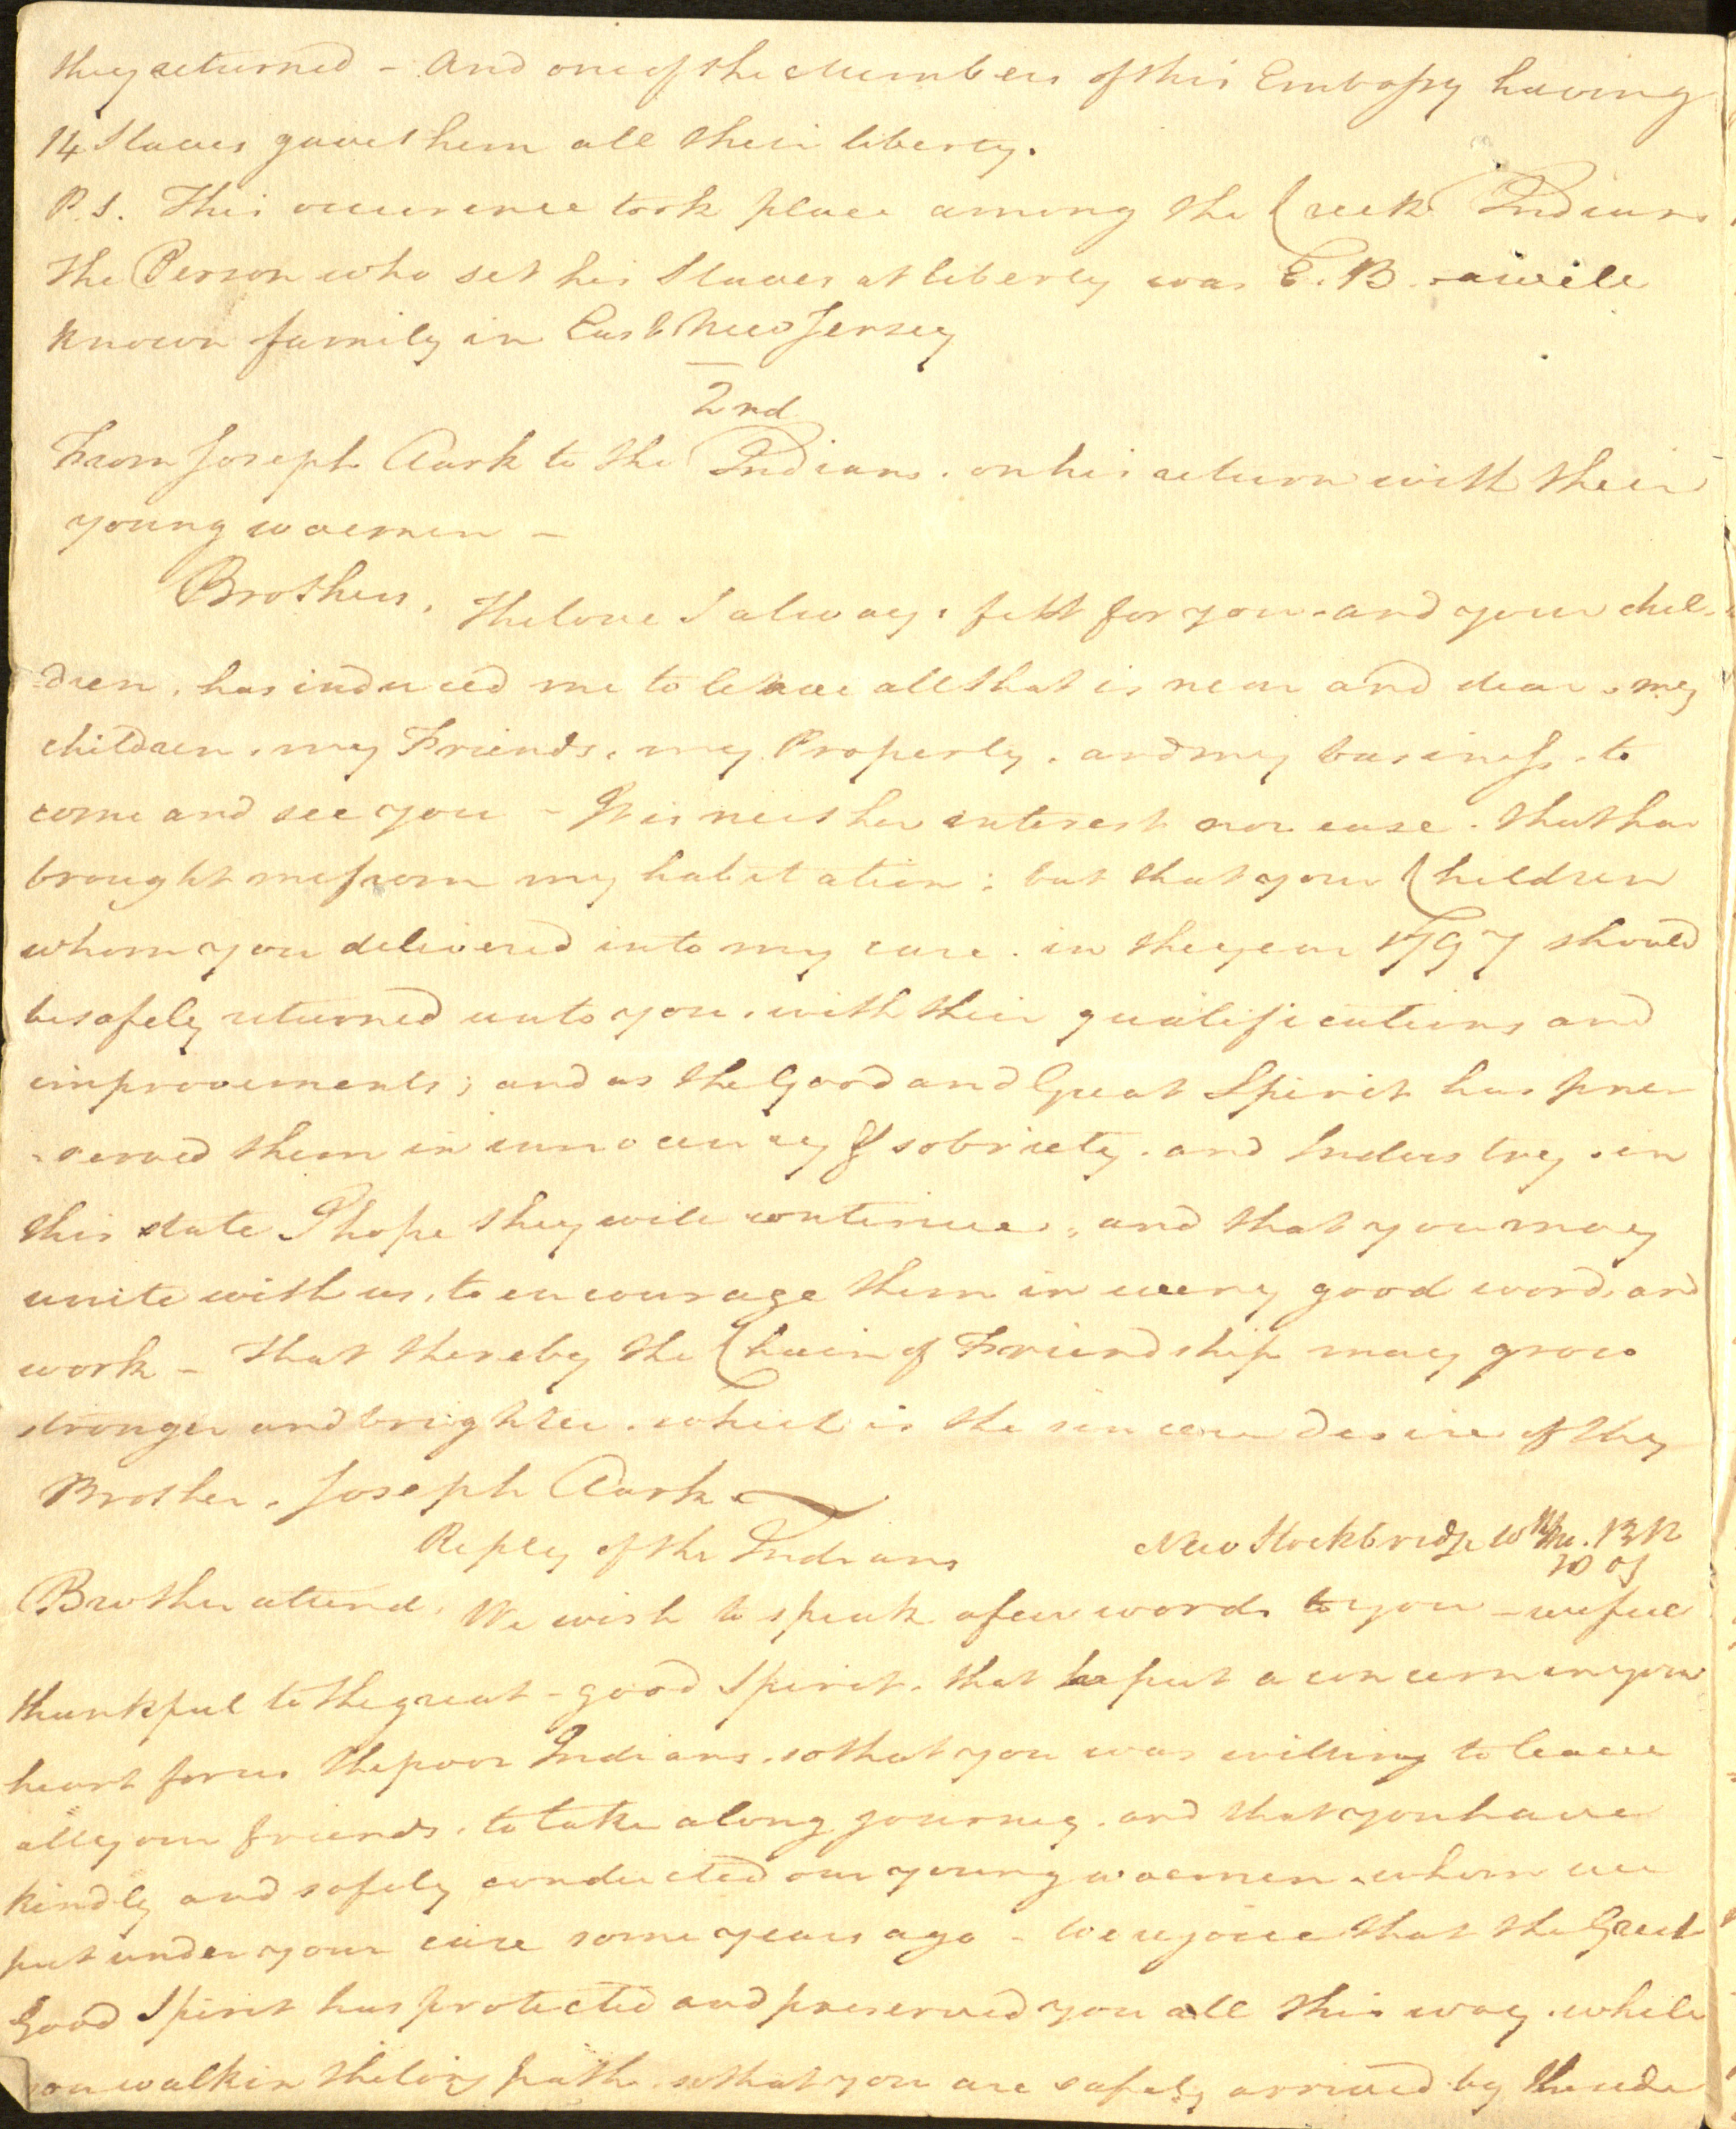 they returned - And one of the Members of this Embassy having
14 Slaves gave them all their liberty.
P.S. This occurence took place among the Creek Indians
the Person who set his Slaves at liberty was E. B. - a well
known family in East New Jersey
2nd
From Joseph Clark to the Indians. on his return with their
young woemen -
Brothers, The love I always felt for you - and your chil-
dren, has induced me to leave all that is near and dear. my
children, my Friends, my Property, and my business, to
come and see you - It is neither interest nor ease. that has
brought me from my habitation; but that your Children
whom you delivered into my care. in the year 1797 should
be safely returned unto you, with their qualifications and
improvements; and as the Good and Great Spirit has pre-
-served them in innocency & sobriety. and Industry. in
this state I hope they will continue, and that you may
unite with us, to encourage them in every good word and
work - That thereby the Chain of Friendship may grow
stronger and brighter. which is the sincere desire of thy
Brother, Joseph Clark.
Reply of the Indians New Stockbridge
Brother attend, We wish to speak a few words to you - we feel
thankful to the great - good Spirit. that he put a concern in your
heart for us the poor Indians. so that you was willing to leave
all your friends. to take a long journey. and that you have
kindly and safely conducted our young woemen. whom we
put under your care some years ago - we rejoice that the Great
Good Spirit has protected and preserved you all this way. while
you walk in the long path. so that you are safely arrived by the side